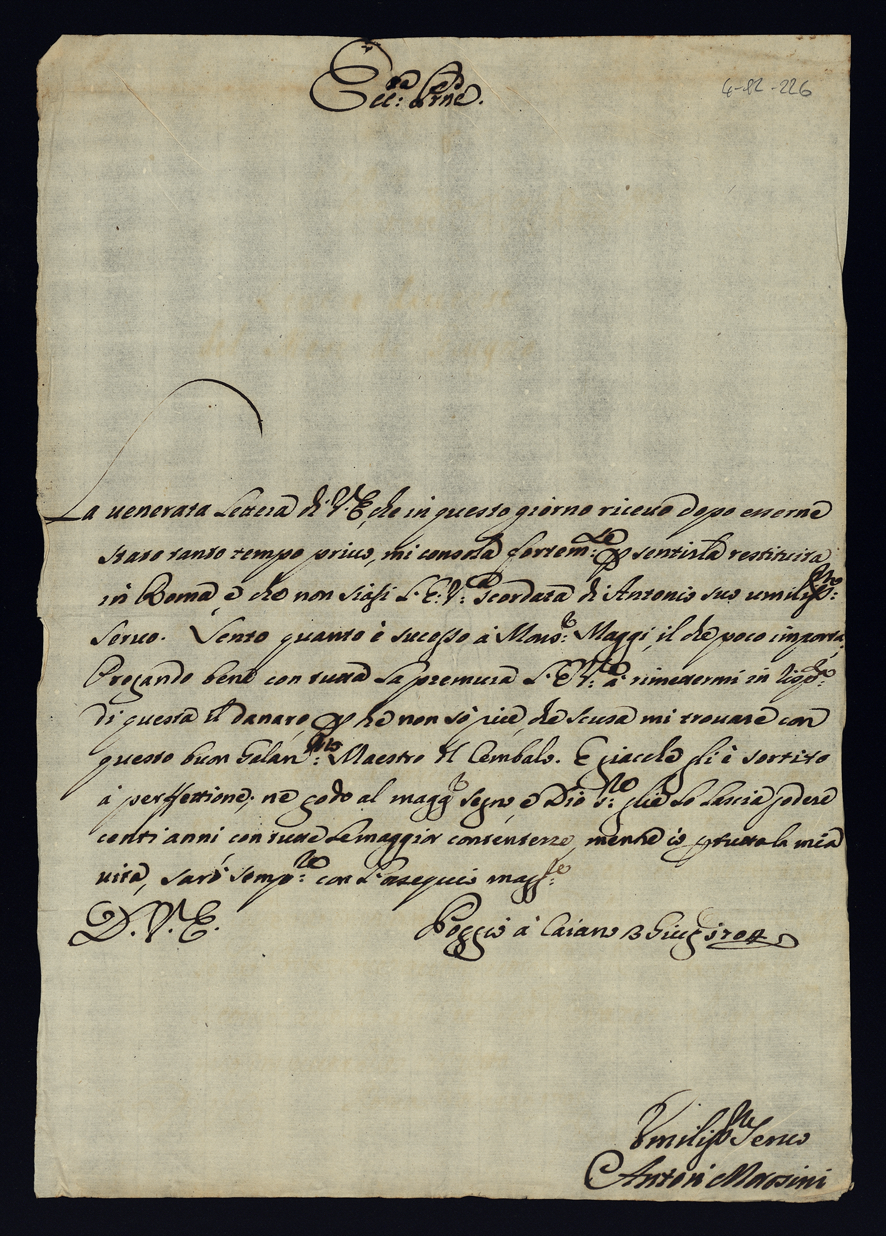 Ecc:za Prne.
4-82-226
La venerata Lettera di V.E. che in questo giorno riceuo dopo esserne
stato tanto tempo priuo, mi consola fortem:te p sentirla restituita
in Roma, e che non siasi L.E.V:a scordata di Antonio suo umiliss:mo
Seruo. Sento quanto è sucesso à Mons:r Maggi, il che poco importa.
Pregando bene con tutta la premura L.E.V:a à rimettermi in
di questa il danaro, p che non sò piú che scusa mi trouare con
questo buon Galan:mo Maestro di Cembalo. E giache gli è sortito
à perffettione, ne godo al magg:r segno e Dio S:re glie lo lascia godere
cent'anni con tutte le maggior contentezze, mentre io p tutta la mia
uita, sarò semp:re con l'osequio magg:re
D.V.E. Poggio à Caiano 3 Giug 1704
Vmiliss:mo Seruo
Antoni Morosini